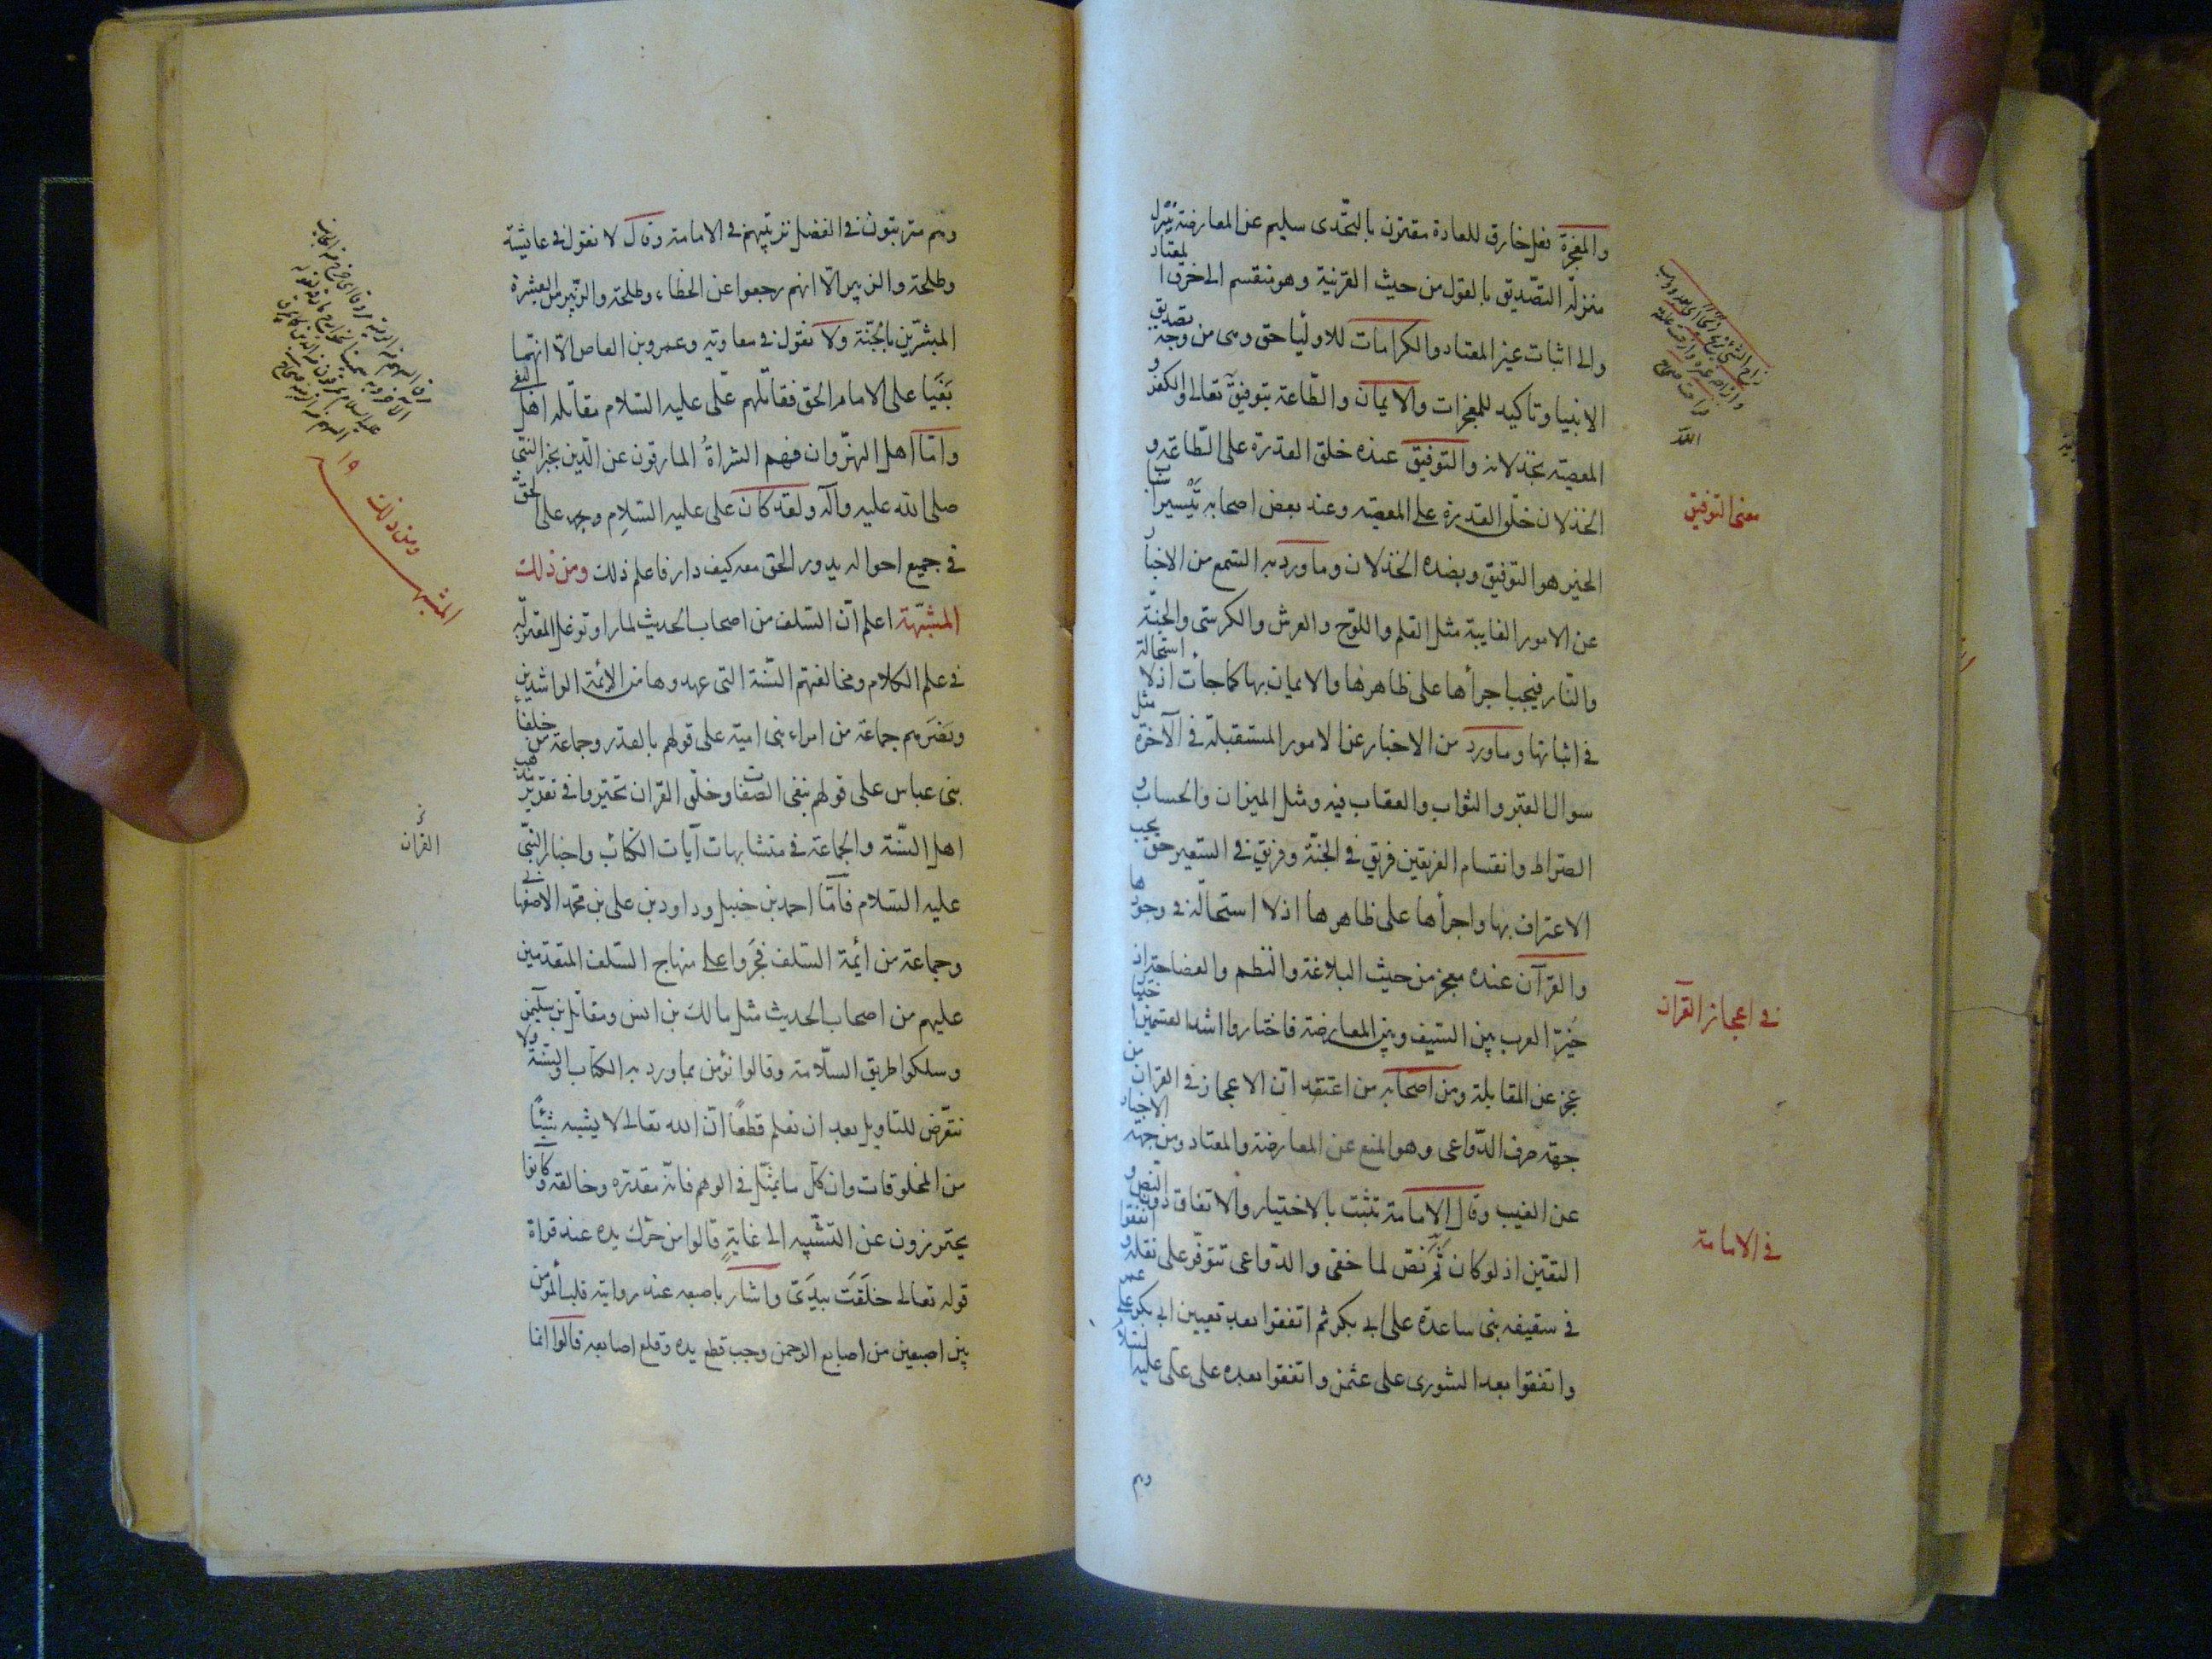 والمعجزة فعل خارق للعادة مقترن بالتحدى سليم عن المعارضة يتنزل
منزلة التصديق بالقول من حيث القرنية وهو منقسم الى خرق المعتاد
والى اثبات غير المعتاد والكرامات للاوليا حق وهى من وجه تصديق
الانبيا وتاكيد للمعجزات والايمان والطاعة بتوفيق تعالى والكفر و
المعصية بخذلانه والتوفيق عنده خلق القدرة على الطاعة و
الخذلان خلق القدرة على المعصية وعند بعض اصحابه تيسير اسباب
الخير هو التوفيق وبضده الخذلان وما ورد به السمع من الاخبار
عن الامور الغايبة مثل القلم واللوح والعرش والكرسى والجنة
والنار فيجب اجرأها على ظاهرها والايمان بها كما جأت اذ لا استحالة
فى اثباتها وما ورد من الاخبار عن الامور المستقبلة فى الآخرة مثل
سوال القبر والثواب والعقاب فيه ومثل الميزان والحساب و
الصراط وانقسام الفريقين فريق فى الجنة وفريق فى السعير حق يجب
الاعتراف بها واجرأها على ظاهرها اذ لا استحالة فى وجودها
والقرآن عنده معجز من حيث البلاغة والنظم والفصاحة اذ
خير العرب بين السيف وبين المعارضة فاختاروا اشد القسمين
عجز عن المقابلة ومن اصحابه من اعتقد ان الاعجاز فى القران من
جهة صرف الدواعى وهو المنع عن المعارضة والمعتاد ومن جهة الاخبار
عن الغيب وقال الامامة تثبت بالاختيار والاتفاق دون النص و
التعين اذ لو كان ثم نص لما خفى والدواعى تتوفر على نقله و اتفقوا
فى سقيفه بنى ساعدة على ابى بكر ثم اتفقوا بعد تعيين ابى بكر على عمر
واتفقوا بعد الشورى على عثمن واتفقوا بعده على على عليه السلام
وهم
الله
معنى التوفيق
فى اعجاز القرآن
فى الامامة
وهم مترتبون فى الفضل ترتيبهم فى الامامة وقال لا نقول فى عايشة
وطلحة والزبير الا انهم رجعوا عن الخطاء وطلحة والزبير من العشرة
المبشرين بالجنة ولا نقول فى معاوية وعمرو بن العاص الا انهما
بغيا على الامام الحق فقاتلهم على عليه السلام مقاتلة اهل البغى
واما اهل النهروان فهم الشراة المارقون عن الدين بخبر النبى
صلى الله عليه وآله ولقد كان على عليه السلام وجهه على الحق
فى جميع احواله يدور الحق معه كيف دار فاعلم ذلك ومن ذلك
المشبهة اعلم ان السلف من اصحاب الحديث لما راو توغل المعتزلة
فى علم الكلام ومخالفتهم السنة التى عهدوها من الائمة الراشدين
ونصرهم جماعة من امراء بنى امية على قولهم بالقدر وجماعة من خلفأ
بنى عباس على قولهم بنفى الصفات وخلق القران تحيروا فى تقرير مذهب
اهل السنة والجماعة فى متشابهات آيات الكتاب واخبار النبى
عليه السلام فاما احمد بن حنبل وداود بن على بن محمد الاصفهانى
وجماعة من أيمة السلف فجروا على منهاج السلف المتقدمين
عليهم من اصحاب الحديث مثل مالك بن انس ومقاتل بن سليمن
وسلكوا طريق السلامة وقالوا نؤمن بما ورد به الكتاب والسنة ولا
نتعرض للتاويل بعد ان نعلم قطعا ان الله تعالى لا يشبه شيئا
من المخلوقات وان كل ما يمثل فى الوهم فانه مقدره وخالقه وكانوا
يحترزون عن التشبيه الى غاية قالوا من حرك يده عند قراة
قوله تعالى خلقت بيدى واشار باصبعه عند رواية قلب المؤمن
بين اصبعين من اصابع الرحمن وجب قطع يده وقلع اصابعه قالوا انما
١٩
ومن ذلك
المشبهة
القران